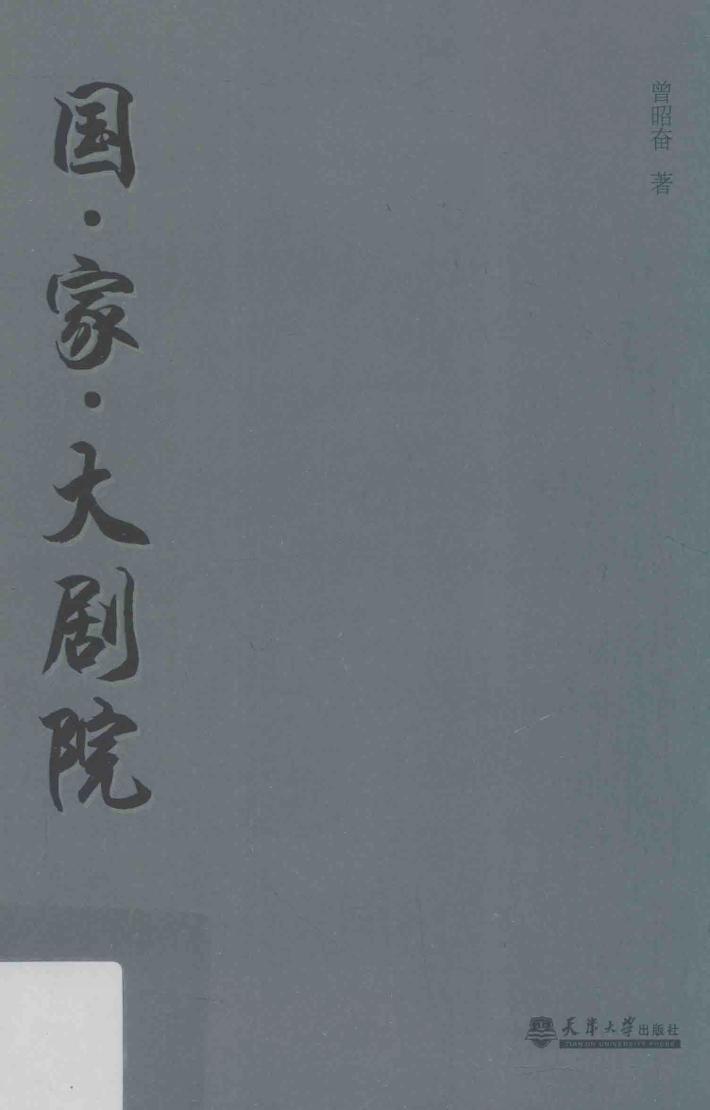 国·家·大剧院
曾昭奋 著
天津大学出版社
TIANJIN UNIVERSITY PRESS